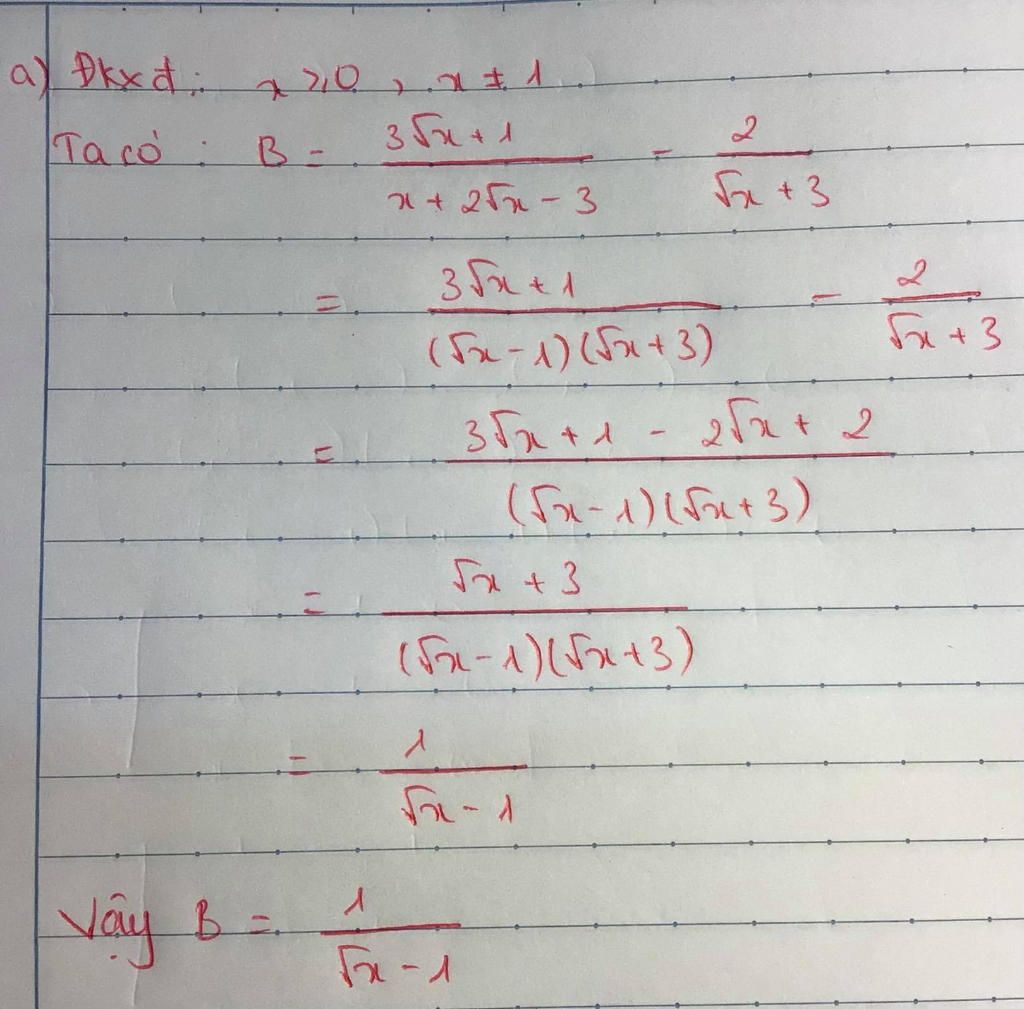 a) Đkxđ: x ≥ 0, x ≠ 1
Ta có: B = \frac{3√x + 1}{x + 2√x - 3} - \frac{2}{√x + 3}
= \frac{3√x + 1}{(√x - 1)(√x + 3)} - \frac{2}{√x + 3}
= \frac{3√x + 1 - 2√x + 2}{(√x - 1)(√x + 3)}
= \frac{√x + 3}{(√x - 1)(√x + 3)}
= \frac{1}{√x - 1}
Vậy B = \frac{1}{√x - 1}